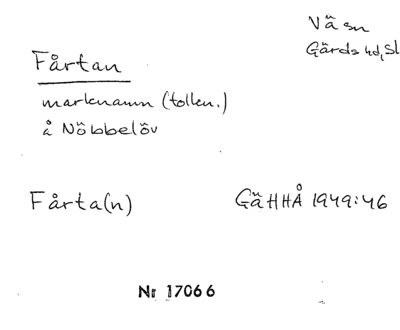 Vä sn
Gärds hd, Sk
Fårtan
marknamn (tollen.)
å Nöbbelöv
Fårta(n)
GäHHÅ 1949:46
Nr 17066